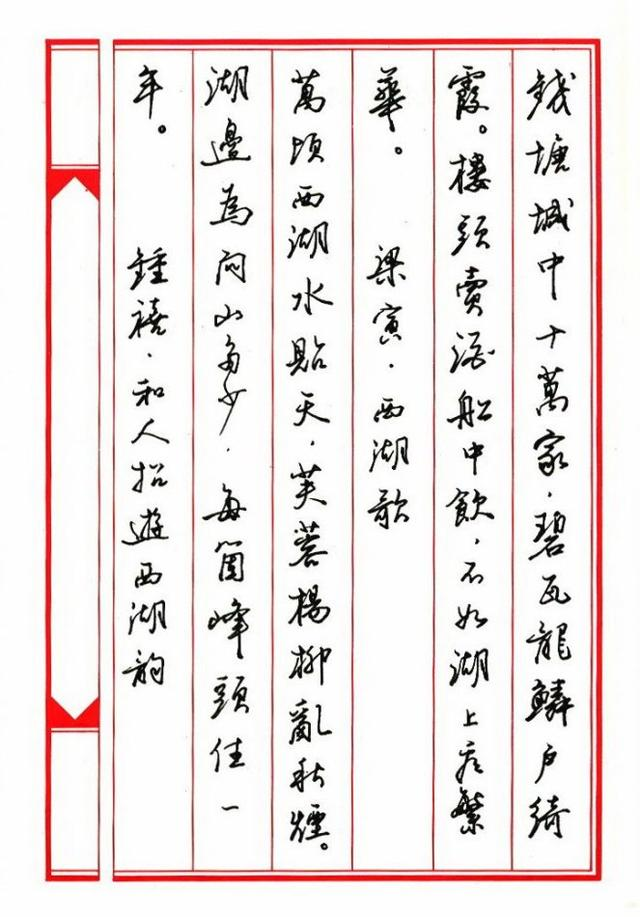 錢塘城中十萬家，碧瓦龍鱗戶綺
霞。樓頭賣酒船中飲，不如湖上多繁
華。　梁寅．西湖歌
萬頃西湖水貼天，芙蓉楊柳亂秋煙。
湖邊為問山多少，每箇峰頭住一
年。　鍾禧．和人招遊西湖韵